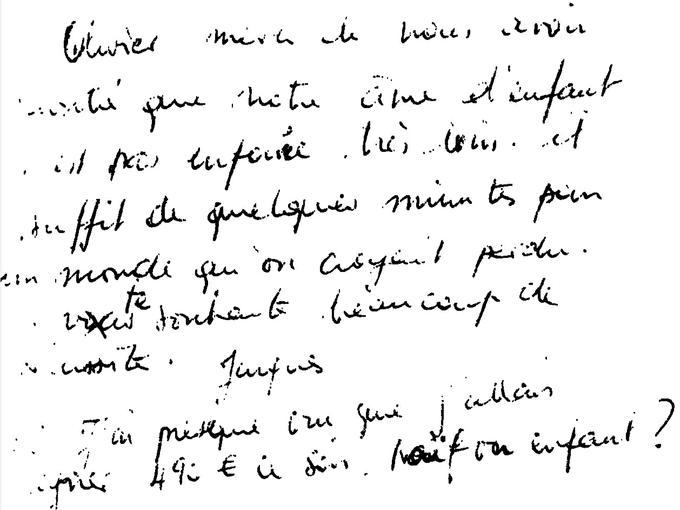 Olivier merci de nous avoir
montré que notre âme d'enfant
est pas enfouie très loin. il
suffit de quelques minutes pour
un monde qu'on croyait perdu.
te souhaite beaucoup de
réussite. Jacques
J'ai presque cru que j'allais
gagner € ce soir. Naïf ou enfant ?